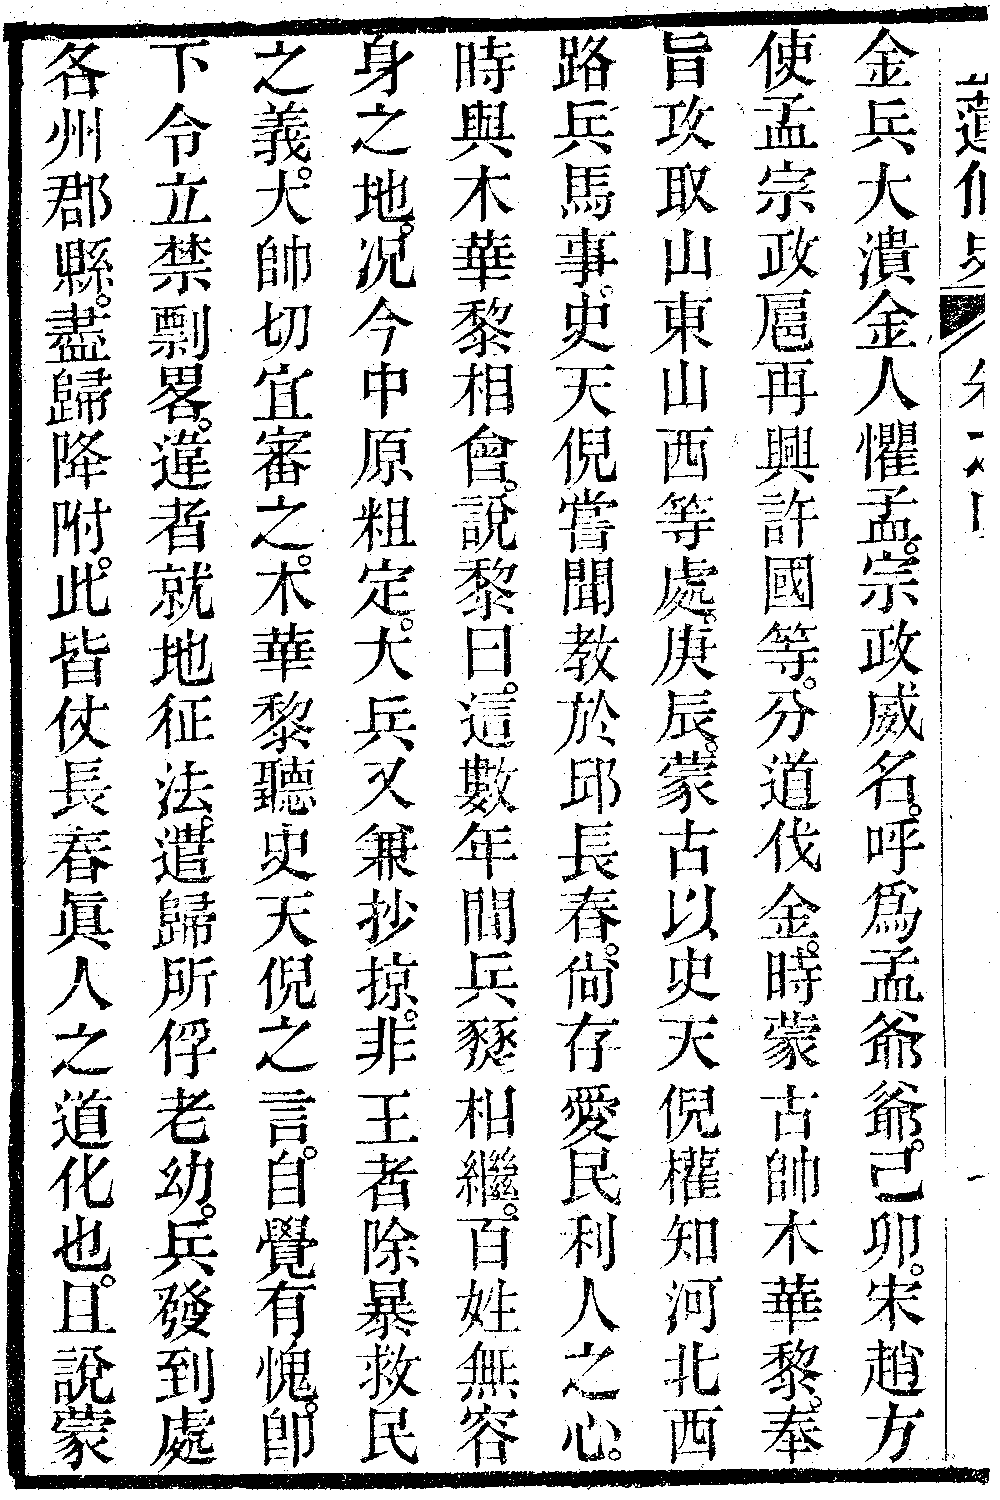 金兵大潰金人懼孟宗政威名呼爲孟爺爺己卯宋趙方
使孟宗政扈再興許國等分道伐金時蒙古帥木華黎奉
旨攻取山東山西等處庚辰蒙古以史天倪權知河北西
路兵馬事史天倪嘗聞教於邱長春尙存愛民利人之心
時與木華黎相會說黎曰這數年間兵燹相繼百姓無容
身之地况今中原粗定大兵又兼抄掠非王者除暴救民
之義大帥切宜審之木華黎聽史天倪之言自覺有愧卽
下令立禁剽畧違者就地征法遣歸所俘老幼兵發到處
各州郡縣盡歸降附此皆仗長春眞人之道化也且說蒙